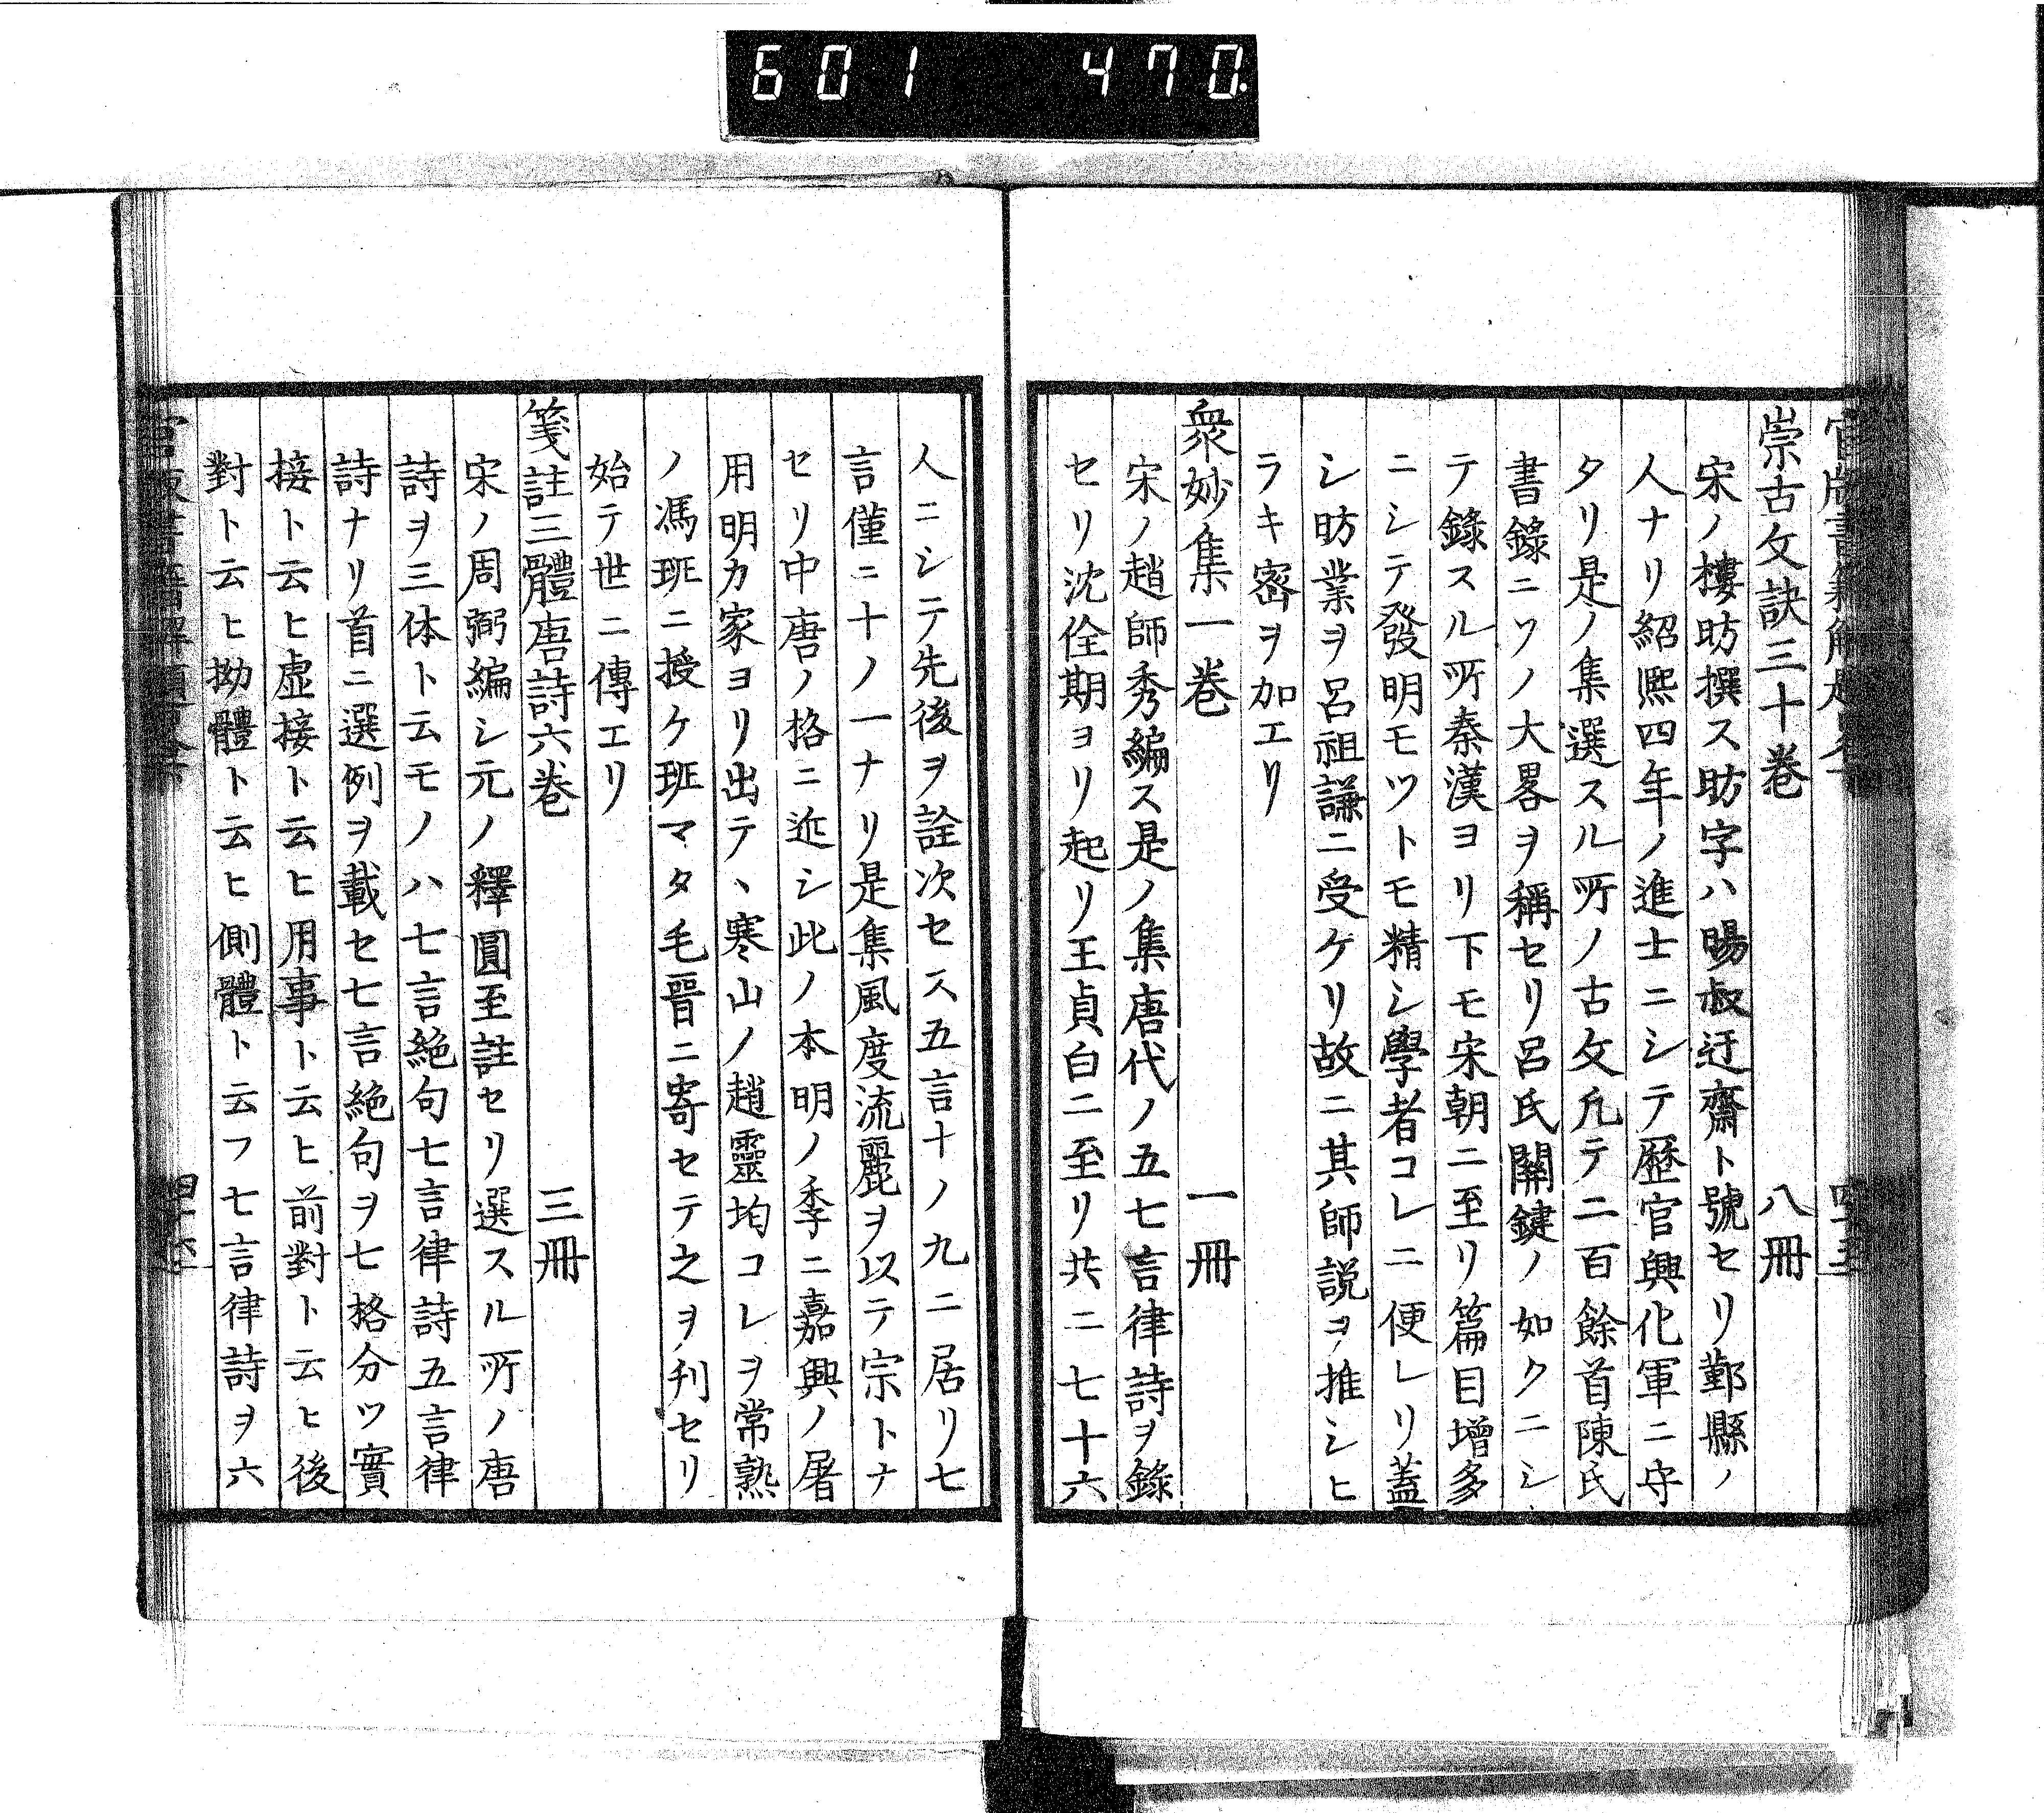 601 470.
崇古文訣三十巻 八冊
宋ノ樓昉撰ス昉字ハ暘叔迂齋ト號セリ鄞縣ノ
人ナリ紹熈四年ノ進士ニシテ歷官興化軍ニ守
タリ是ノ集選スル所ノ古文凢テ二百餘首陳氏
書錄ニソノ大畧ヲ稱セリ呂氏關鍵ノ如クニシ
テ錄スル所秦漢ヨリ下モ宋朝ニ至リ篇目增多
ニシテ發明モツトモ精シ學者コレニ便レリ蓋
シ昉業ヲ呂祖謙ニ受ケリ故ニ其師説ヲ推シヒ
ラキ宻ヲ加エリ
衆妙集一巻 一冊
宋ノ趙師秀編ス是ノ集唐代ノ五七言律詩ヲ錄
セリ沈佺期ヨリ起リ王貞白ニ至リ共ニ七十六
人ニシテ先後ヲ詮次セス五言十ノ九ニ居リ七
言僅ニ十ノ一ナリ是集風度流麗ヲ以テ宗トナ
セリ中唐ノ格ニ近シ此ノ本明ノ季ニ嘉興ノ屠
用明カ家ヨリ出テ、寒山ノ趙靈均コレヲ常熟
ノ馮班ニ授ケ班マタ毛晉ニ寄セテ之ヲ刋セリ
始テ世ニ傳エリ
箋註三體唐詩六巻 三冊
宋ノ周弼編シ元ノ釋圓至註セリ選スル所ノ唐
詩ヲ三体ト云モノハ七言絶句七言律詩五言律
詩ナリ首ニ選例ヲ載セ七言絶句ヲ七格分ツ實
接ト云ヒ虚接ト云ヒ用事ト云ヒ前對ト云ヒ後
對ト云ヒ拗體ト云ヒ側體ト云フ七言律詩ヲ六